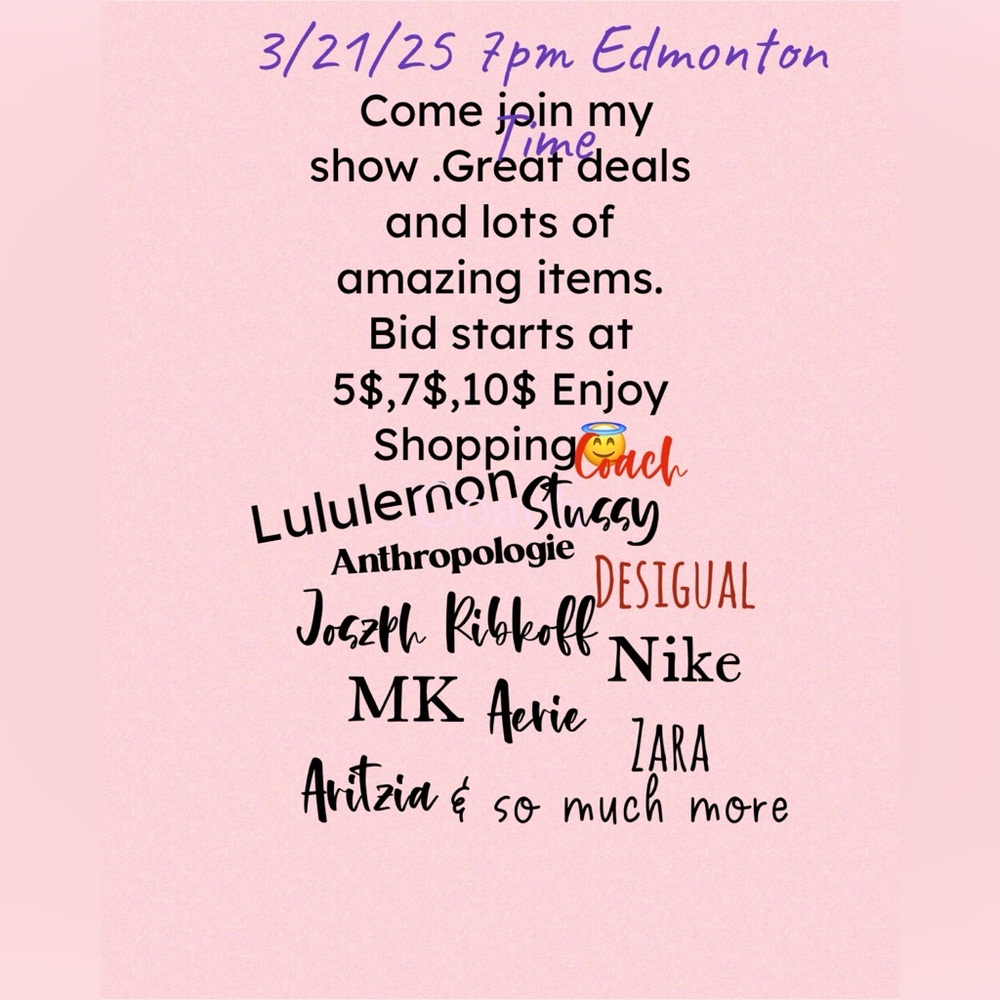 3/21/25 7pm Edmonton
Time
Come join my
show .Great deals
and lots of
amazing items.
Bid starts at
5$,7$,10$ Enjoy
Shopping😇
Coach
Lululemon
Stussy
Anthropologie
DESIGUAL
Joszph Ribkoff
Nike
MK
Aerie
ZARA
Aritzia & so much more